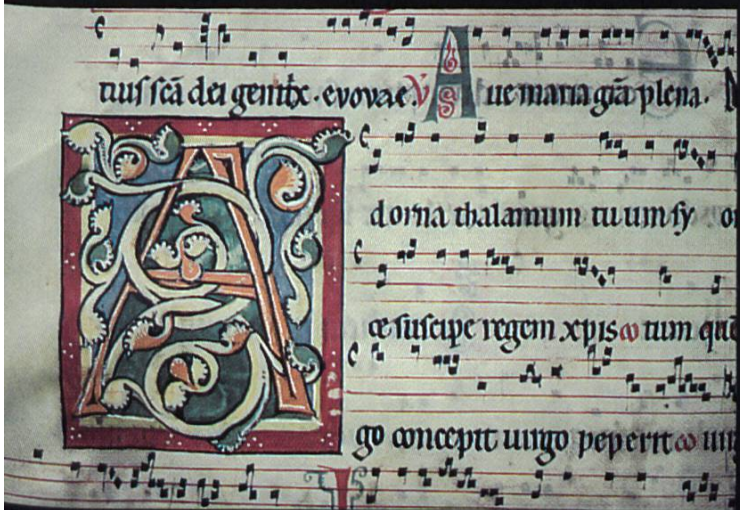 tius scā dei genitx · evovae. V Aue maria grā plena.
Adorna thalamum tuum sy
ce suscipe regem xpis tum quē
go concepit uirgo peperit